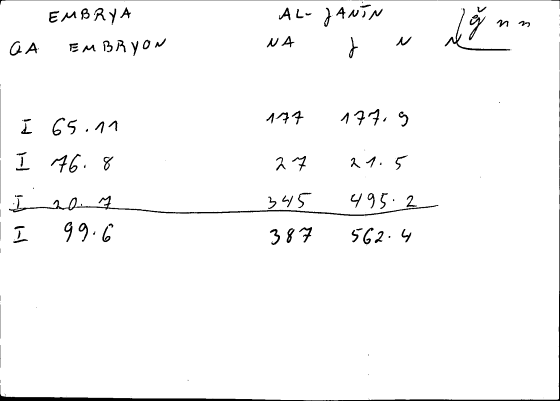 EMBRYA AL-JANĪN ǧ n n
GA EMBRYON NA J N N
I 65.11 177 177.9
I 76.8 27 21.5
I 20.7 345 495.2
I 99.6 387 562.4